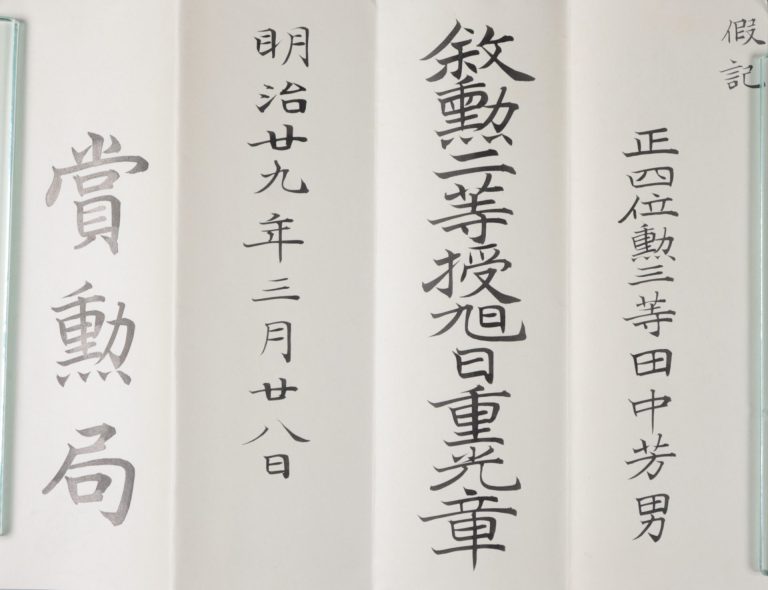 假記
正四位勲三等田中芳男
敘勲二等授旭日重光章
明治廿九年三月廿八日
賞勲局